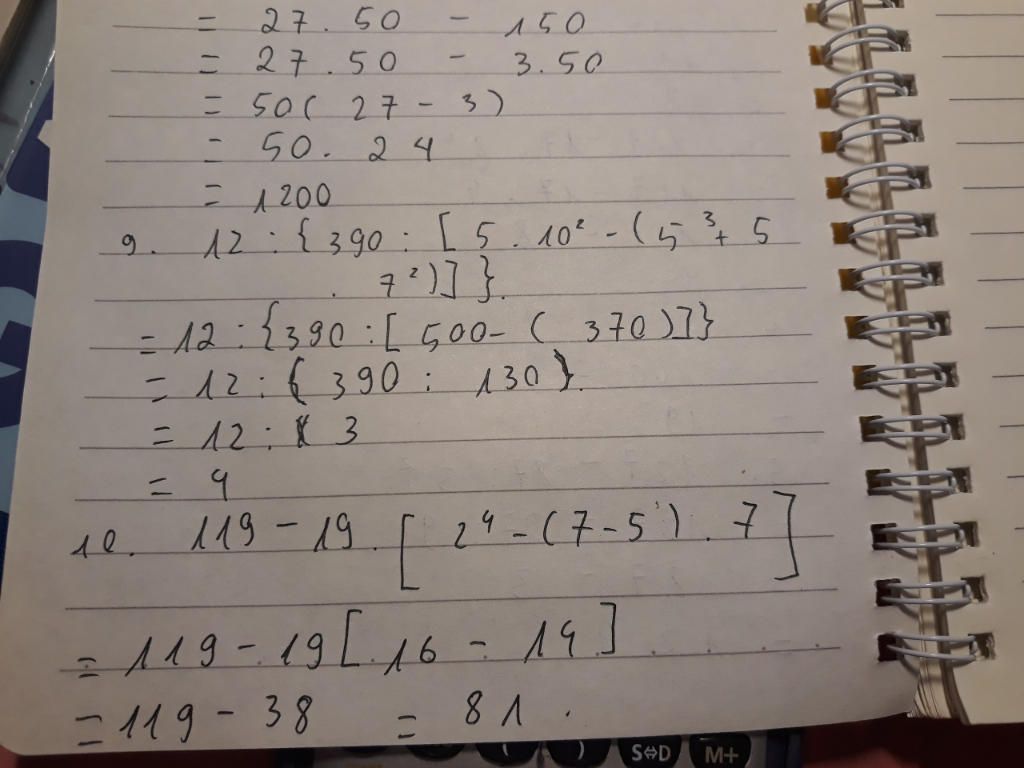 = 27 . 50 - 150
= 27 . 50 - 3.50
= 50( 27 - 3)
= 50. 24
= 1200
9. 12 : { 390 : [ 5 . 10² - ( 5³ + 5
. 7²)] }.
= 12 : {390 : [ 500 - ( 370 )]}
= 12 : { 390 : 130 }.
= 12 : 3
= 4
10. 119 - 19 . [ 2⁴ - (7-5) . 7 ]
= 119 - 19 [ 16 - 14 ]
= 119 - 38 = 81 .
( ) S⇔D M+